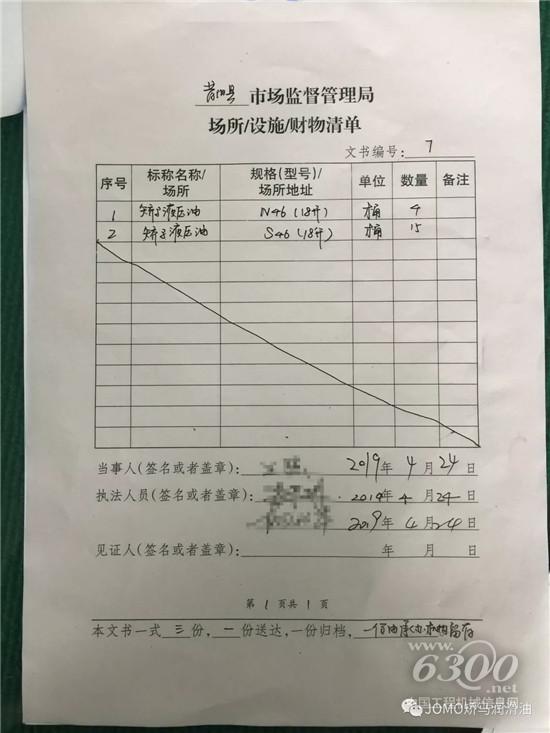 莒南县 市场监督管理局
场所/设施/财物清单
文书编号: 7
序号 标称名称/场所 规格(型号)/场所地址 单位 数量 备注
1 矫马液压油 N46 (18升) 桶 4
2 矫马液压油 S46 (18升) 桶 15
当事人(签名或者盖章): 2019年 4月 24日
执法人员(签名或者盖章): 2019年 4月 24日
2019年 4月 24日
见证人(签名或者盖章): 年 月 日
第 1 页共 1 页
本文书一式 三 份, 一 份送达, 一份归档, 一份由承办机构留存
www.
6300
.net
中国工程机械信息网
JOMO矫马润滑油